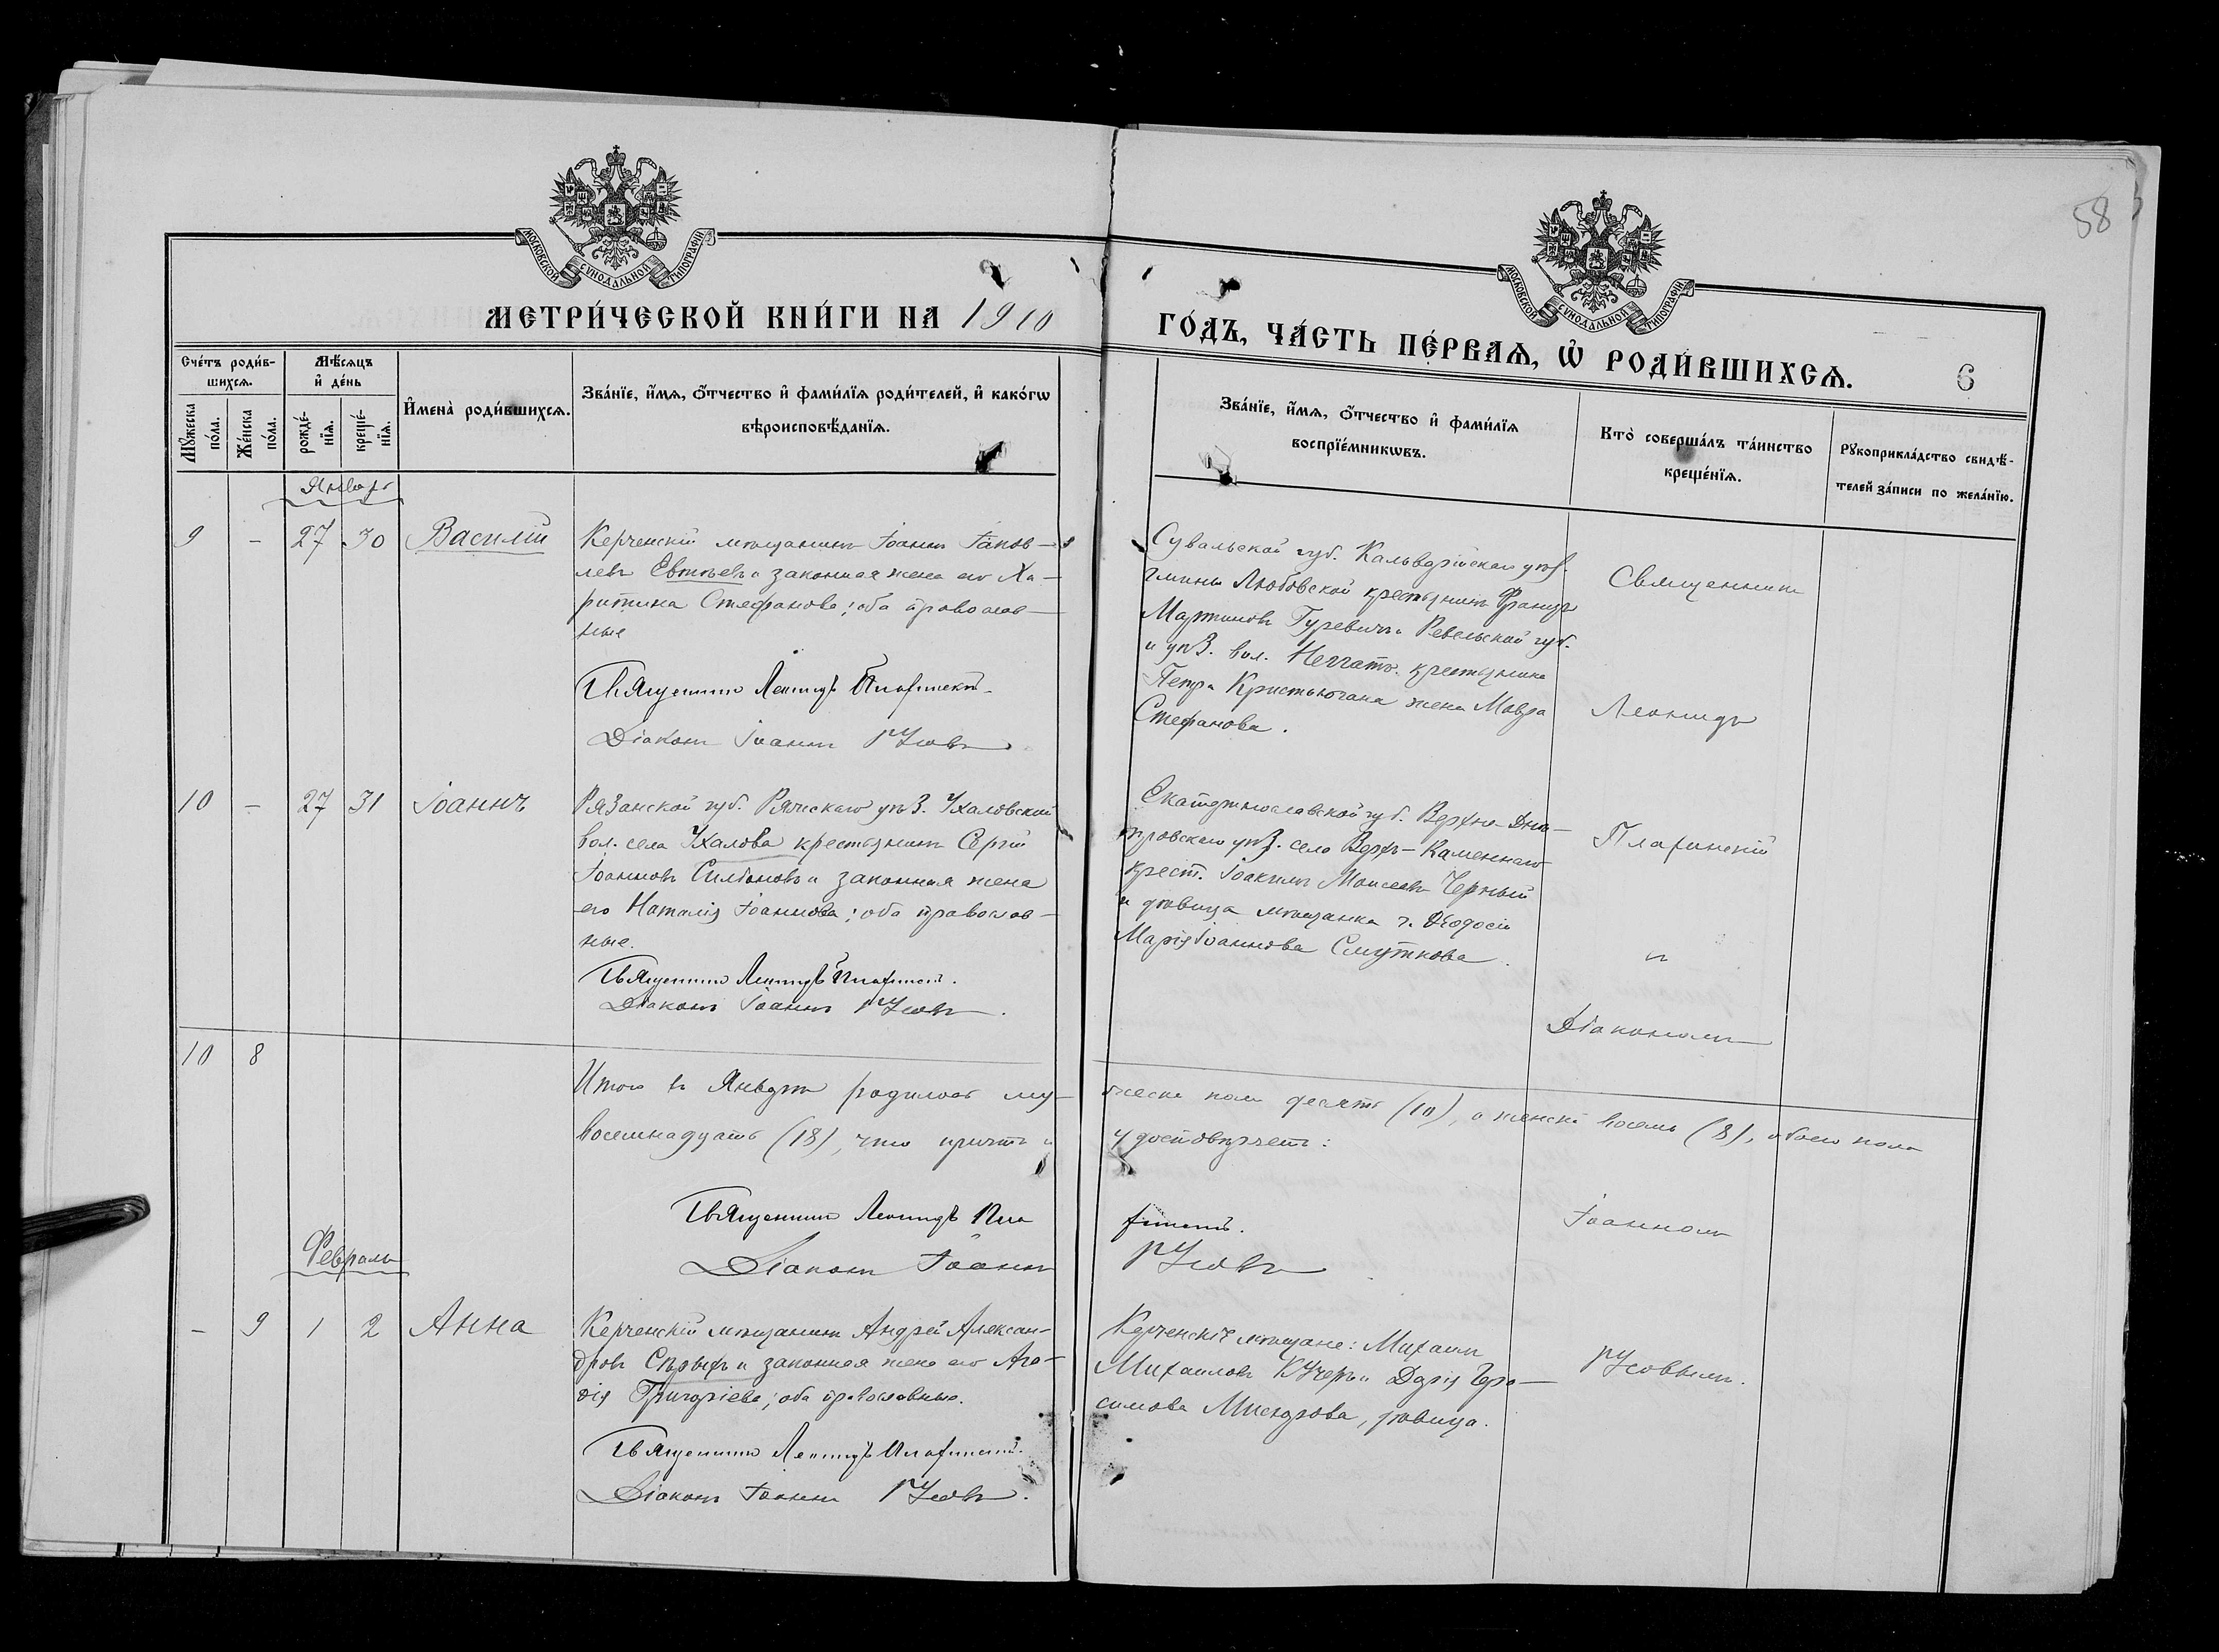 58
МОСКОВСКОЙ СѴНОДАЛЬНОЙ ТИПОГРАФІИ
МОСКОВСКОЙ СѴНОДАЛЬНОЙ ТИПОГРАФІИ
МЕТРИ́ЧЕСКОЙ КНИ́ГИ НА 1910
ГО́ДЪ, ЧА́СТЬ ПЕ́РВАѦ, Ѡ҆ РОДИ́ВШИХСѦ.
6
Сче́тъ роди́в-
шихсѧ.
Мꙋ́жеска
по́ла.
Же́нска
по́ла.
Мѣ́сѧцъ
и҆ де́нь
рожде́-
нїѧ.
креще́-
нїѧ.
И҆мена̀ роди́вшихсѧ.
Зва́нїе, и҆́мѧ, ѻ҆́тчество и҆ фами́лїѧ роди́телей, и҆ како́гѡ
вѣроисповѣ́данїѧ.
Зва́нїе, и҆́мѧ, ѻ҆́тчество и҆ фами́лїѧ
воспрїе́мникѡвъ.
Кто̀ соверша́лъ та́инство
креще́нїѧ.
Рꙋкоприкла́дство свидѣ́-
телей за́писи по жела́нїю.
Январь
9 - 27 30 Василій
Керченскій мѣщанинъ Іоаннъ Іаков-
левъ Евтѣевъ и законная жена его Ха-
ритина Стефанова; оба православ-
ные
Священникъ Леонидъ Плафинскій.
Діаконъ Іоаннъ Усовъ
Сувальской губ. Кальварійскаго уѣз.
гмины Любовской крестьянинъ Францъ
Мартиновъ Гуревичъ и Ревельской губ.
и уѣз. вол. крестьянина
Петра жена Мавра
Стефанова.
Священникъ
Леонидъ
10 - 27 31 Іоаннъ
Рязанской губ. Ряжскаго уѣз. Ухаловской
вол. села Ухалова крестьянинъ Сергій
Іоанновъ и законная жена
его Наталія Іоаннова; оба православ-
ные.
Священникъ Леонидъ Плафинскій.
Діаконъ Іоаннъ Усовъ.
Екатеринославской губ. Верхне-Днѣ-
провскаго уѣз. села Верхъ-Каменнаго
крест. Іоакимъ Моисеевъ Черный
и дѣвица мѣщанка г. Ѳеодосіи
Марія Іоаннова Смуткова.
Плафинскій
и
Діакономъ
10 8
Итого въ Январѣ родилось му-
жеска пола десять (10), а женска восемь (8), обоего пола
восемнадцать (18), что причтъ и
удостовѣряетъ:
Священникъ Леонидъ Пла
финскій.
Діаконъ Іоаннъ
Усовъ
Іоанномъ
Февраль
- 9 1 2 Анна
Керченскій мѣщанинъ Андрей Алексан-
дровъ Сѣрыхъ и законная жена его Ага-
ѳія Григоріева; оба православные.
Священникъ Леонидъ Плафинскій.
Діаконъ Іоаннъ Усовъ.
Керченскіе мѣщане: Михаилъ
Михаиловъ Кучеръ и Дарія Гера-
симова дѣвица.
Усовымъ.